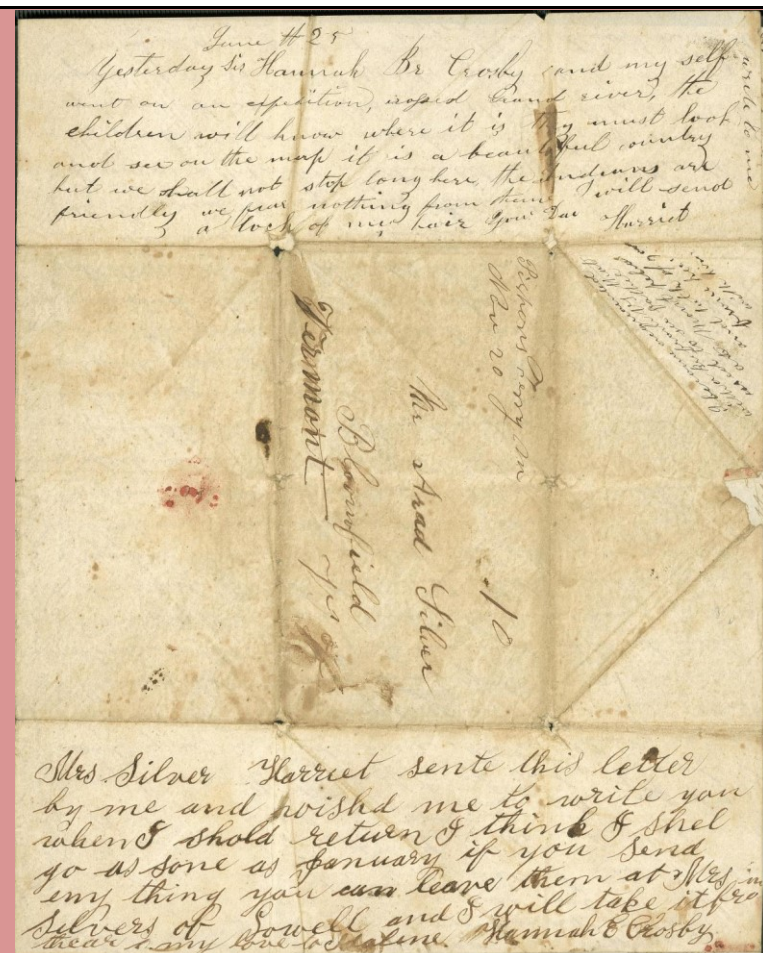 June #25
Yesterday Sis Hannah Br Crosby and my self
went on an expedition, crosed Grand river, the
children will know where it is they must look
and see on the map it is a beautiful country
but we shall not stop long here, the indians are
friendly we fear nothing from them I will send
a lock of my hair Harriet
write to me
Nov 20
10
Mr Arad Silver
Bloomfield
Vermont
Mrs Silver Harriet sente this letter
by me and wishd me to write you
when I shold return I think I shel
go as sone as January if you send
eny thing you can leave them at Mrs
Silvers of Lowell and I will take it fro
thear my love to Hannah E Crosby